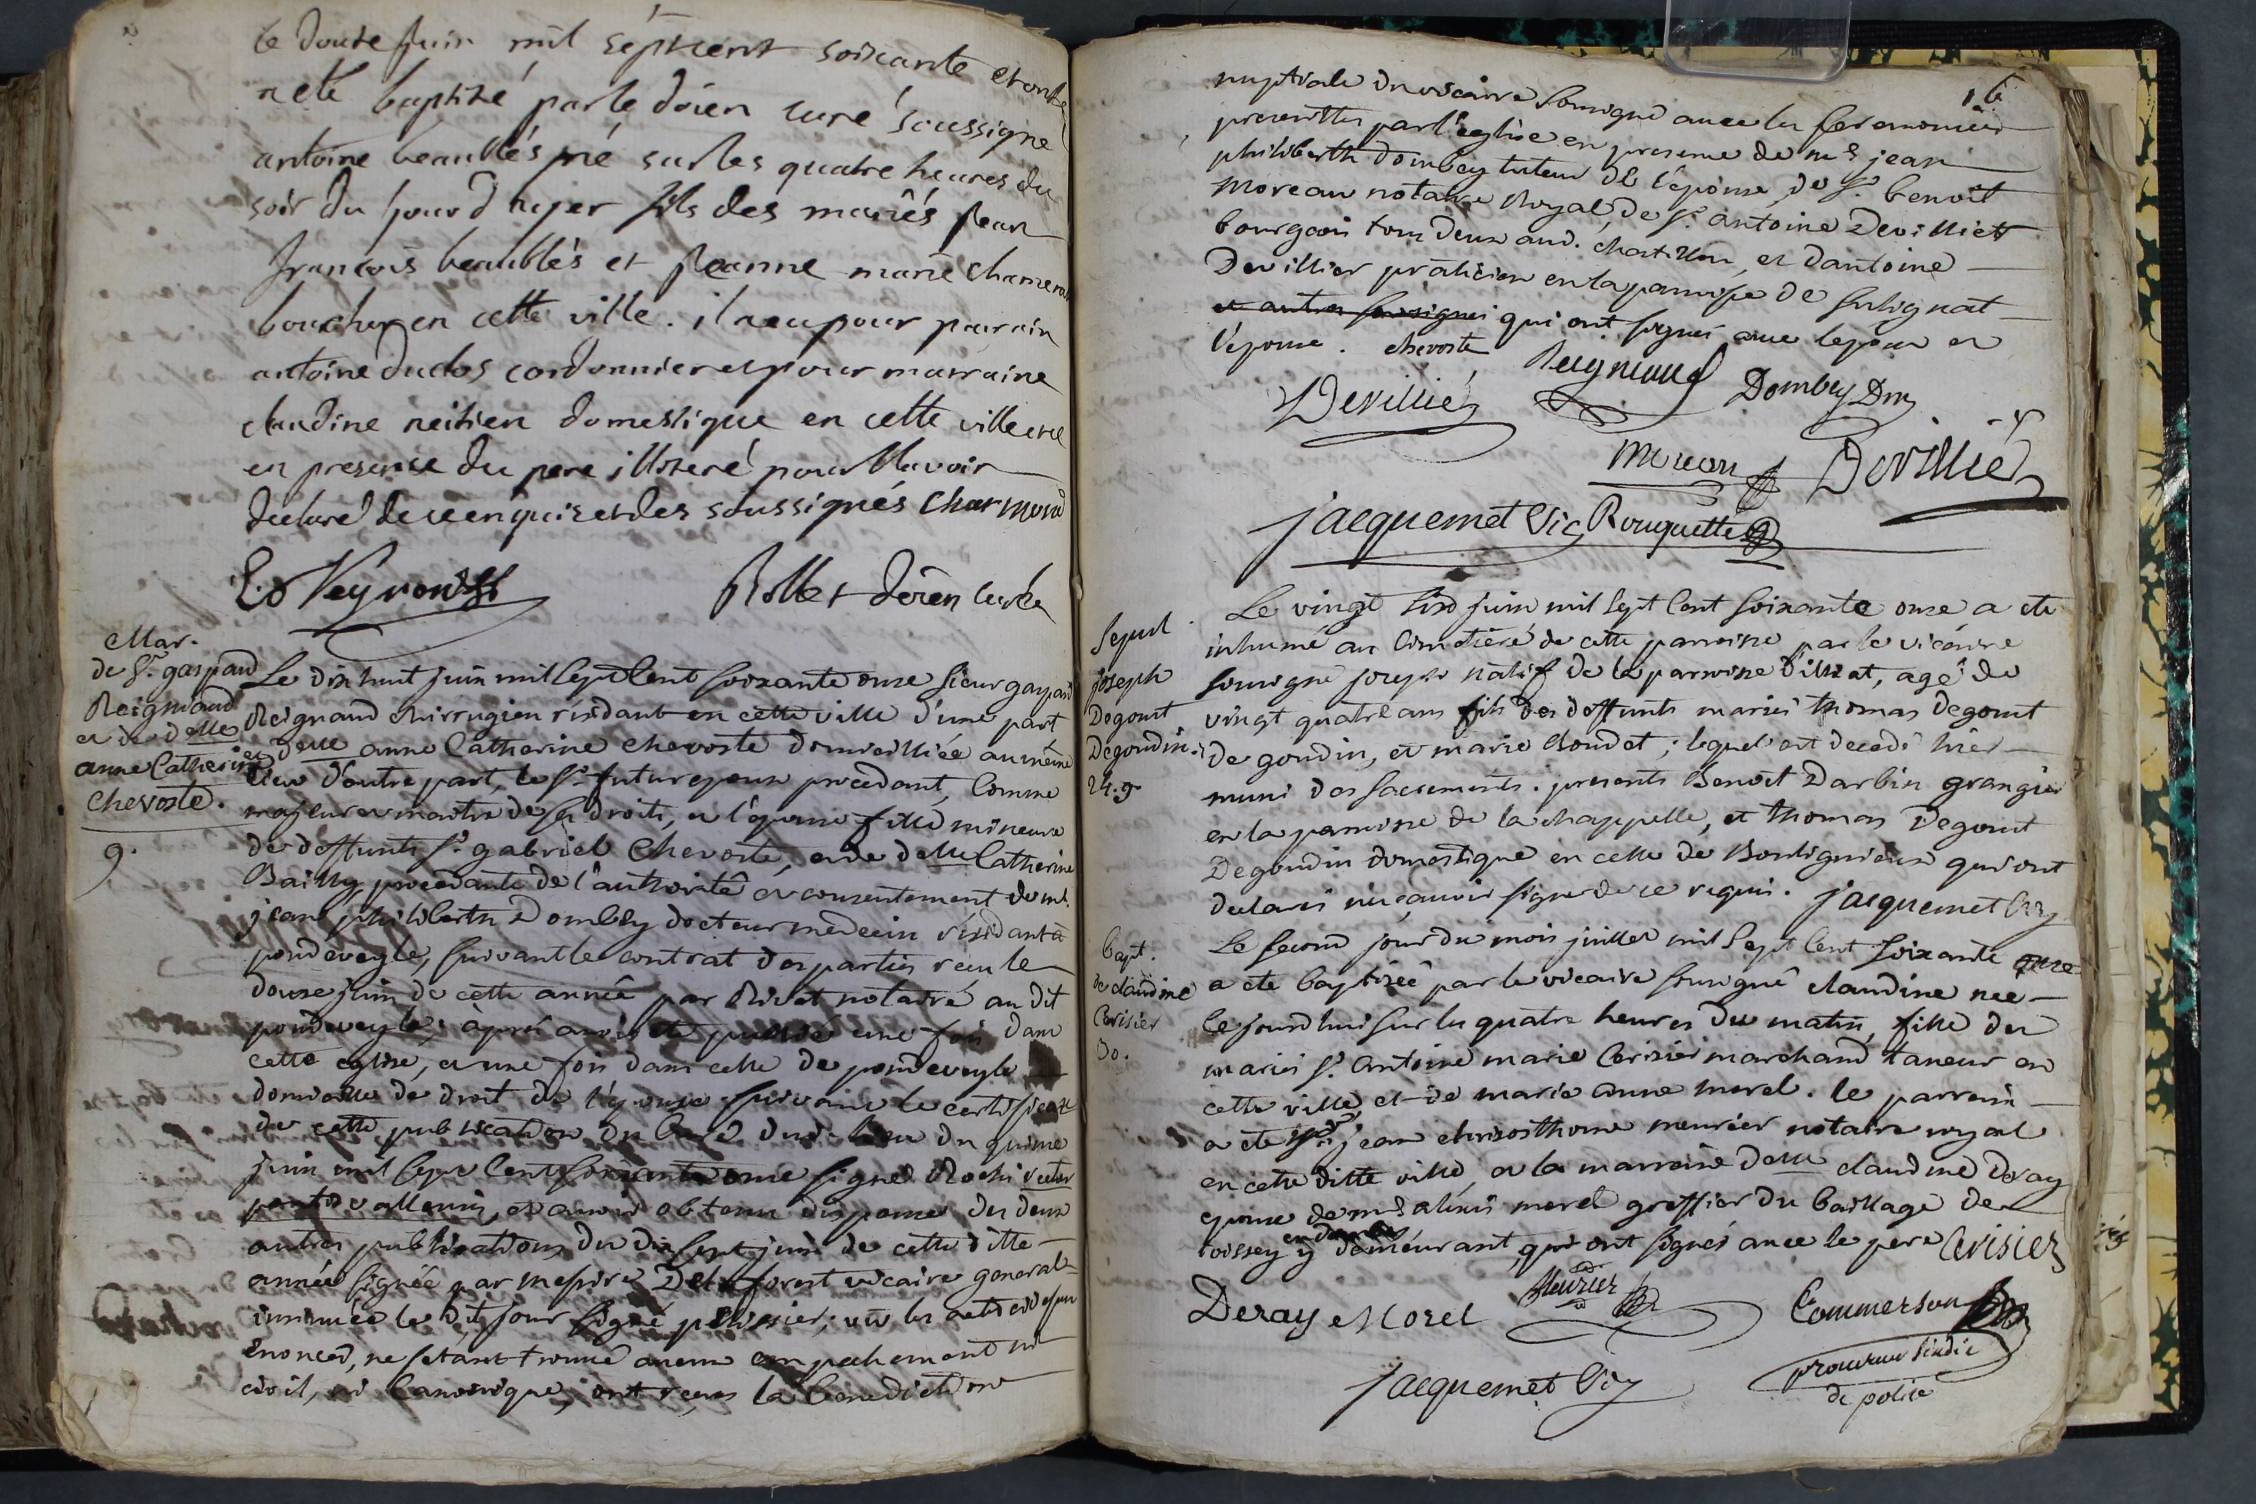 le douze juin mil septcent soixante et onze
a ete baptizé par le doien curé soussigné
antoine beaublés né sur les quatre heures du
soir du jour d'hyer fils des mariés jean
françois beaublés et jeanne marie chameral
boucher en cette ville. il a eu pour parrain
antoine duclos cordonnier et pour marraine
claudine neitien domestique en cette ville
en presence du pere illiteré pour l'avoir
declaré de ce enquis et des soussignés Charmond
Rollet doïen curé
Mar.
de Sr. gaspard
Reignaud
et de delle
anne Catherine
Chevoste.
9.
Le dix huit juin mil sept Cent soixante onze sieur gaspard
Reignaud chirurgien résidant en cette ville d'une part
et delle anne Catherine Chevoste domiciliée au même
lieu d'autre part, le Sr. futur epoux procedant, Comme
majeur et maitre de ses droits, et l'epouse fille mineure
de deffunts Sr. gabriel Chevoste, et de delle Catherine
Bailly procedante de l'authorité et consentement de mr.
jean philiberth Dombey docteur medecin résidant à
pondeveyle, suivant le contrat des parties recu le
douze juin de cette année par Rivet notaire au dit
pondeveyle; après avoir été publié une fois dans
cette eglise, et une fois dans celle de pondeveyle
domicille de droit de l'épouse suivant le certificat
de cette publication du dud. lieu du quinze
juin mil sept Cent soixante onze signé Rochi
et avoir obtenu dispense des deux
autres publications du dix sept juin de cette ditte
année signée par messire Delaforest vicaire general
insinuée le dit jour signé ; vu les actes cy dessus
énoncés, ne s'etant trouvé aucun empechement ni
civil, ni Canonique, ont reçus la benediction
16
nuptiale du vicaire soussigné avec les ceremonies
prescrittes par l'eglise en presence de mr. jean
philiberth dombey tuteur de l'épouse, de Sr. benoit
moreau notaire Royal, de Sr. antoine Devilliett
bourgeois tous deux aud. chatillon, et d'antoine
Devillier praticien en la paroisse de Sulignat
et autres soussignés qui ont signés avec l'epoux et
l'épouse. chevoste Reigniaud Dombey Dm
Devilliés
moreau Devilliés
jacquemet Vic Rouquette
Sepul.
joseph
Degout
Degoudin.
24. g.
Le vingt six juin mil sept Cent soixante onze a ete
inhumé au Cimetière de cette parroisse par le vicaire
soussigné joseph natif de la parroisse d'illiat, agé de
vingt quatre ans fils des deffunts mariés thomas degout
de goudin, et marie Boudet; lequel est decedé hier
muni des sacrements. presents Benoit Darbin granger
en la parroisse de la chappelle, et thomas Degout
Degoudin domestique en celle de Bouligneux qui ont
declarés ne sçavoir signer de ce requis. jacquemet Vic
bapt.
de claudine
Cerisier
Do.
Le second jour du mois juillet mil sept Cent soixante onze
a ete baptisée par le vicaire soussigné claudine nee
ce jourd'hui sur les quatre heures du matin, fille des
mariés Sr. antoine marie Cerisier marchand taneur en
cette ville, et de marie anne morel. le parrein
a ete Sr. jean chrisosthome meurier notaire royal
en cette ditte ville, et la marreine delle claudine deray
epouse de mr. alexis morel greffier du baillage de
toissey y demeurant, qui ont signés avec le pere Cerisier
Deray Morel Meurier Commerson
procureur sindic
de police
jacquemet Vic